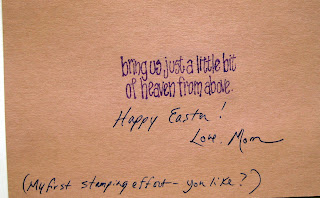 bring us just a little bit
of heaven from above.
Happy Easter!
Love, Mom
(My first stamping effort - you like?)